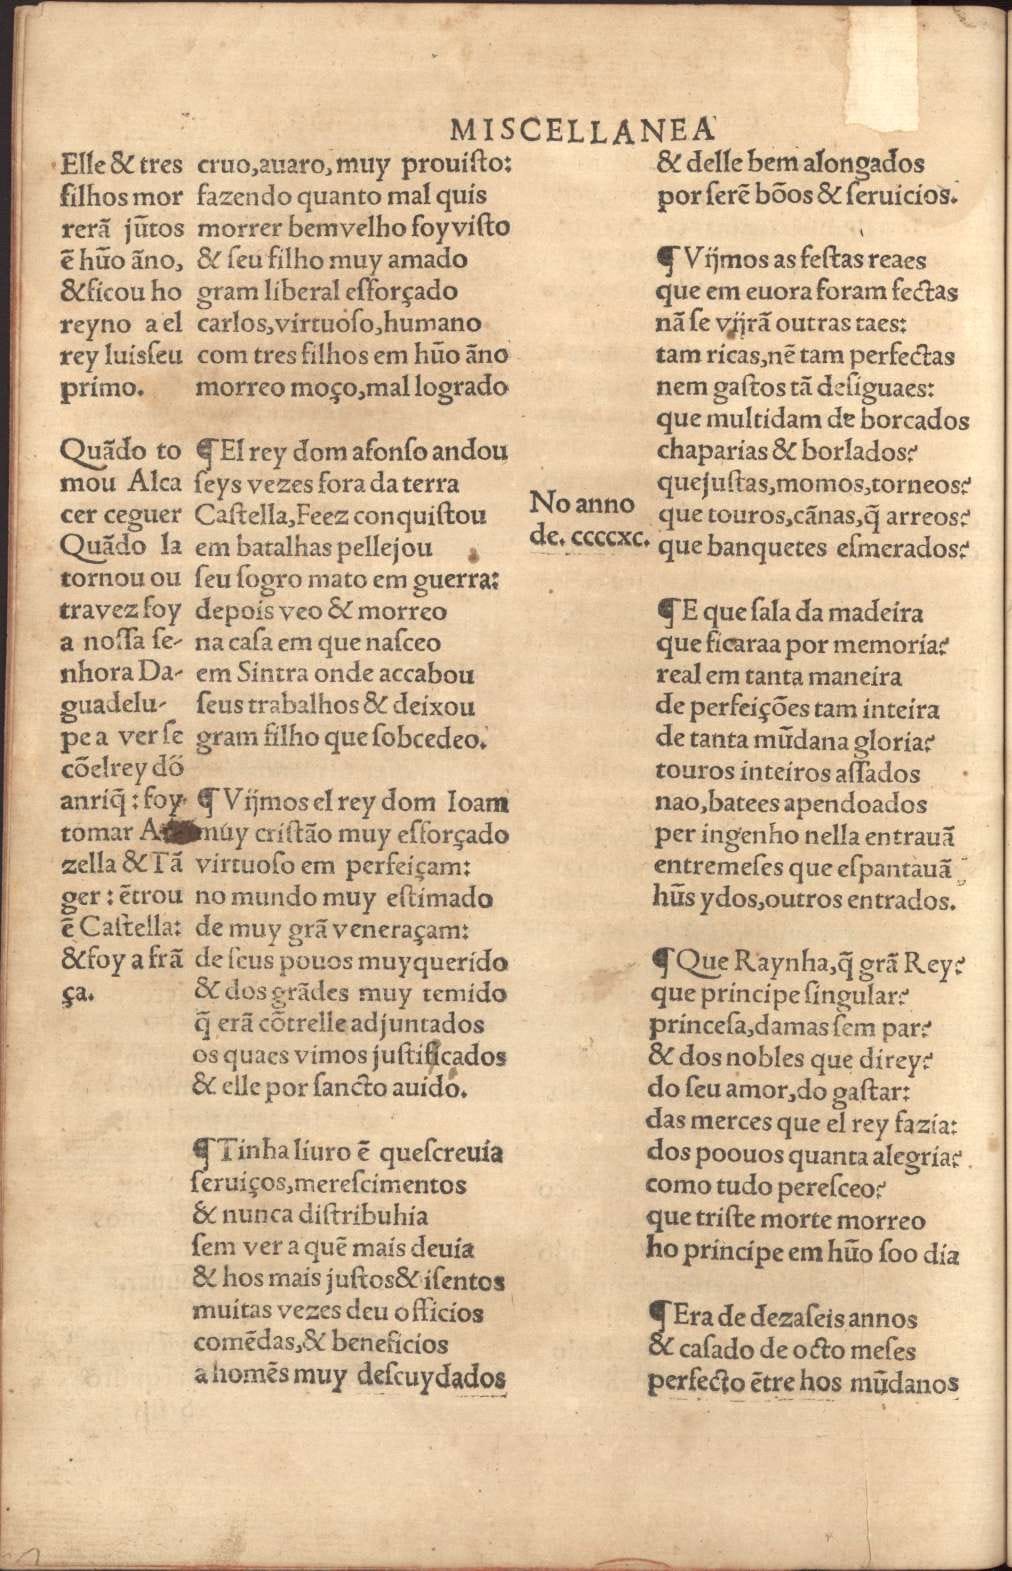 MISCELLANEA
Elle & tres
filhos mor
rerã jũtos
ẽ hũo ãno,
& ficou ho
reyno a el
rey luis seu
primo.
cruo, auaro, muy prouiſto:
fazendo quanto mal quis
morrer bem velho foy viſto
& ſeu filho muy amado
gram liberal esforçado
carlos, virtuoſo, humano
com tres filhos em hũo ãno
morreo moço, mal logrado
Quãdo to
mou Alca
cer ceguer
Quãdo la
tornou ou
travez foy
a noſſa ſe-
nhora Da-
guadelu-
pe a ver ſe
cõ elrey dõ
anriq̃: foy
tomar
zella & Tã
ger: ẽtrou
ẽ Caſtella:
& foy a frã
ça.
¶ El rey dom afonſo andou
ſeys vezes fora da terra
Caſtella, Feez conquiſtou
em batalhas pellejou
ſeu ſogro mato em guerra:
depois veo & morreo
na caſa em que naſceo
em Sintra onde accabou
ſeus trabalhos & deixou
gram filho que ſobcedeo.
¶ Vijmos el rey dom Ioam
muy criſtão muy esforçado
virtuoſo em perfeiçam:
no mundo muy eſtimado
de muy grã veneraçam:
de ſeus pouos muy querido
& dos grãdes muy temido
q̃ erã cõtrelle adjuntados
os quaes vimos juſtificados
& elle por ſancto auido.
¶ Tinha liuro ẽ queſcreuia
ſeruiços, mereſcimentos
& nunca diſtribuhia
ſem ver a quẽ mais deuia
& hos mais juſtos & iſentos
muitas vezes deu officios
comẽdas, & beneficios
a homẽs muy deſcuydados
& delle bem alongados
por ſerẽ bõos & ſeruicios.
¶ Vijmos as feſtas reaes
que em euora foram fectas
nã ſe vijrã outras taes:
tam ricas, nẽ tam perfectas
nem gaſtos tã deſiguaes:
que multidam de borcados
chaparias & borlados?
que juſtas, momos, torneos?
No anno
de. ccccxc.
que touros, cãnas, q̃ arreos?
que banquetes eſmerados?
¶ E que ſala da madeira
que ficaraa por memoria?
real em tanta maneira
de perfeições tam inteira
de tanta mũdana gloria?
touros inteiros aſſados
nao, batees apendoados
per ingenho nella entrauã
entremeſes que eſpantauã
hũs ydos, outros entrados.
¶ Que Raynha, q̃ grã Rey?
que principe ſingular?
princeſa, damas ſem par?
& dos nobles que direy?
do ſeu amor, do gaſtar:
das merces que el rey fazia:
dos poouos quanta alegria?
como tudo pereſceo?
que triſte morte morreo
ho principe em hũo ſoo dia
¶ Era de dezaſeis annos
& caſado de octo meſes
perfecto ẽtre hos mũdanos